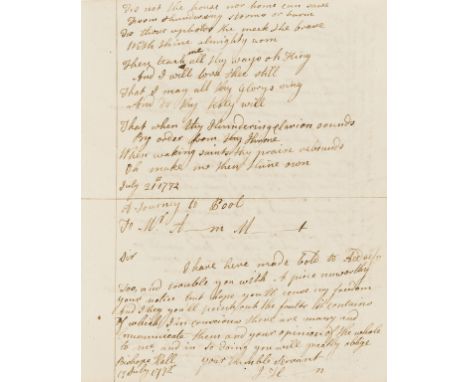 Tis not the house nor home can save
From thundering storms or burn
Do thou uphold the meek the brave
With thine almighty arm
Then teach me all thy ways oh King
And I will love thee still
That I may all thy Glorys sing
And do thy holy will
That when thy thundering clarion sounds
By order from thy throne
When waking saints thy praise rebounds
Oh make me then thine own
July 21st 1772
A Journey to Pool
To Mr A— m M— t
Sir
I have here made bold to
you, and trouble you with A piece unworthy
your notice but hope you'll excuse my freedom
And I beg you'll point out the faults it contains
of which I'm conscious there are many and
communicate them and your opinion of the whole
to me, and in so doing you will greatly oblige
your Humble Servant
Bishops Hall
July 1772 J H n